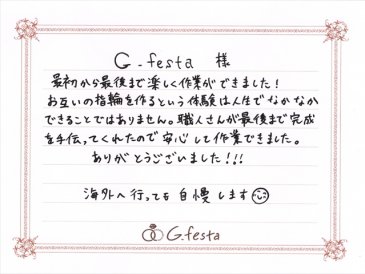 G.festa 様
最初から最後まで楽しく作業ができました!
お互いの指輪を作るという体験は人生でなかなか
できることではありません。職人さんが最後まで完成
を手伝ってくれたので安心して作業できました。
ありがとうございました!!!
海外へ行っても自慢します
G.festa